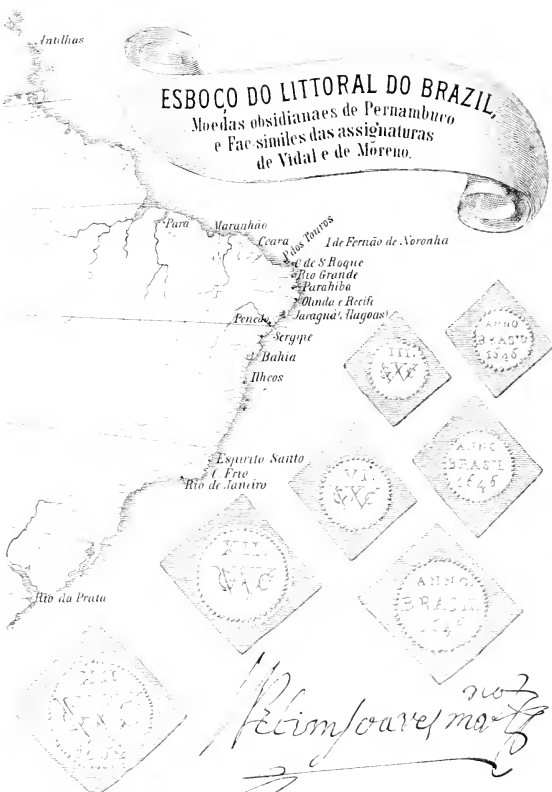 ESBOÇO DO LITTORAL DO BRAZIL,
Moedas obsidianaes de Pernambuco
e Fac-similes das assignaturas
de Vidal e de Moreno.
Antilhas
Pará
Maranhão
Ceara
Pta dos Touros
I de Fernão de Noronha
C de S Roque
Rio Grande
Parahiba
Olinda e Recife
Penedo
Jaraguá (Alagoas)
Sergipe
Bahia
Ilheos
Espirito Santo
C Frio
Rio de Janeiro
Rio da Prata
III.
ANNO
BRASIL
1646
VI.
ANNO
BRASIL
1646
XII.
ANNO
BRASIL
1646
XII